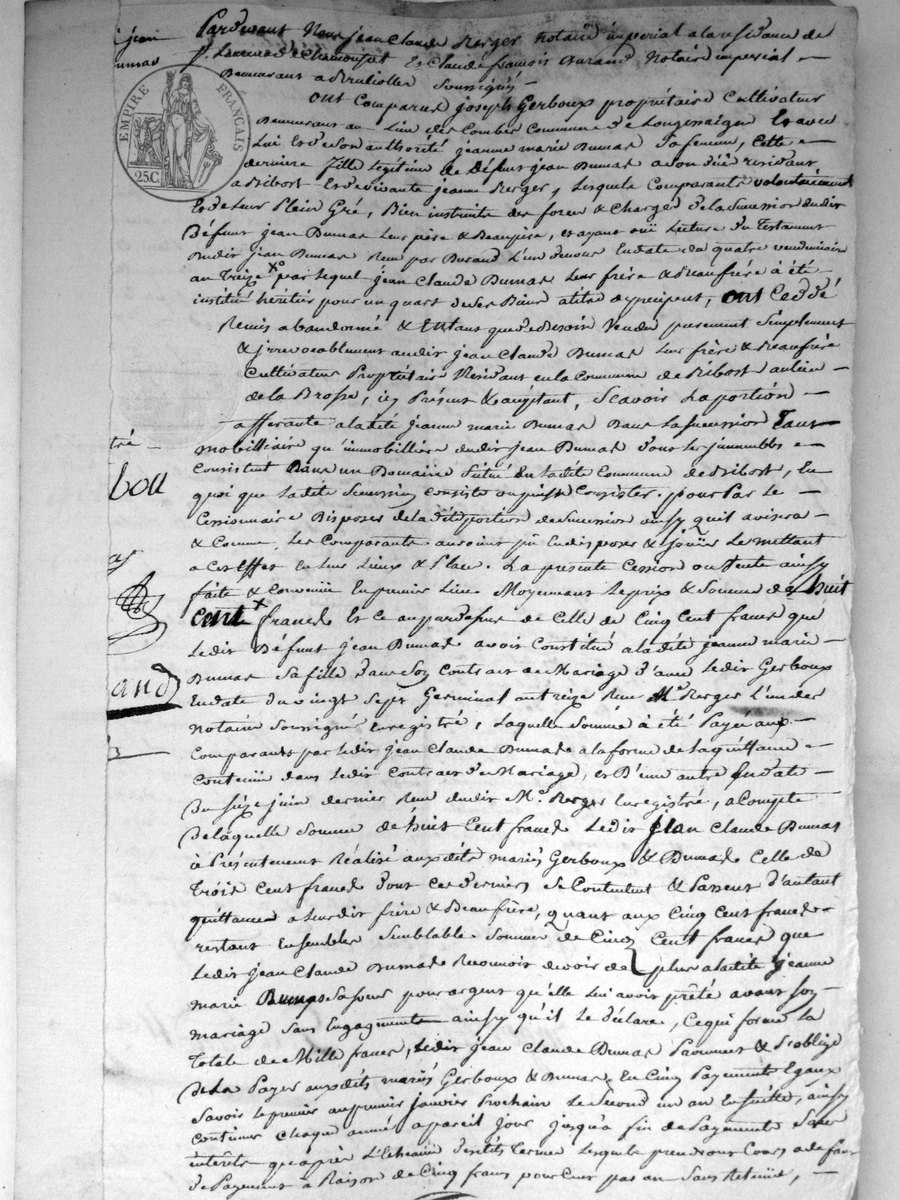 Pardevant Nous Jean Claude Berger Notaire impérial a la residence de
St Laurent de Chamousset et Claude Francois Durand Notaire imperial
Demeurant a Brullioles Soussignés
EMPIRE FRANÇAIS
25.C
Ont Comparu Joseph Gerboux propriétaire Cultivateur
Demeurant au Lieu des Combes Commune de Longessaigne Et avec
Lui Et de Son authorité Jeanne marie Dumas Sa femme, Cette
derniere fille legitime de Défunt Jean Dumas a Son vivant residant
a Ribost Et de vivante Jeanne Berger, Lesquels Comparants volontairement
Et de Leur Plein Gré, Bien instruits des forces & Charges de la Succession dudit
Défunt Jean Dumas Leur père & Beaupère, et ayant oüi Lecture du Testament
dudit Jean Dumas Reçu par Durand L'un de nous En date du quatre vendemiaire
an Treize par lequel Jean Claude Dumas Leur frère & Beaufrère à été
institué héritier pour un quart de Ses Biens a titre de preciput, ont Ceddé
Remis abandonné & En tant que de Besoin Vendu purement Simplement
& irrevocablement audit Jean Claude Dumas Leur frère & Beaufrère
Cultivateur Propriétaire Residant en la Commune de Ribost au lieu
de la Brosse, icy Présent & acceptant, Scavoir La portion
afferante a la dite Jeanne marie Dumas Dans La Succession Tant
mobilliaire qu'immobilliere dudit Jean Dumas Dont Les immeubles
Consistent Dans un Domaine Situé En la dite Commune de Ribost, En
quoi que La dite Succession Consiste ou puisse Consister. pour Par Le
Cessionnaire Disposer de la dite portion de Succession ainsy quil avisera
& Comme Les Comparants auroient pû En disposer & Joüir Le mettant
a Cet Effet En Leur Lieux & Place. La présente Cession ou Vente ainsy
faite & Convenüe En premier Lieu Moyennant Le prix & Somme de huit
Cent francs Et Ce au par dessus de Celle de Cinq Cent francs que
Ledit Défunt Jean Dumas avoit Constitué a la dite Jeanne marie
Dumas Sa fille Dans Son Contrat de Mariage d'avec Ledit Gerboux
En date du vingt Sept Germinal an treize Reçu Me Berger L'un des
Notaires Soussignés Enregistré, Laquelle Somme à été Payée aux
Comparants par Ledit Jean Claude Dumas a la forme de La quittance
Contenüe dans Ledit Contrat de Mariage, et D'une autre En date
Du Seize juin dernier Reçu dudit Me Berger Enregistré, a Compte
De laquelle Somme de huit Cent francs Ledit Jean Claude Dumas
à Présentement Réalisé aux dits mariés Gerboux & Dumas Celle de
Trois Cent francs Dont Ces derniers Se Contentent & Passent d'autant
quittance a Leurdit frère & Beaufrère, quant aux Cinq Cent francs
restant Ensembles Semblable Somme de Cinq Cent francs que
Ledit Jean Claude Dumas Reconnoit devoir de plus a la dite Jeanne
marie Dumas Sa Soeur pour argent qu'elle Lui avoit prêté avant Son
mariage Sans Engagements ainsy qu'il Le déclare, Ce qui forme La
Totale de Mille francs, Ledit Jean Claude Dumas Promet & S'oblige
De La Payer aux dits mariés Gerboux & Dumas En Cinq Payements Egaux
Savoir Le premier au premier Janvier Prochain Le Second un an Ensuite, ainsy
Continuer Chaque année a pareil Jour jusqua fin de Payement Sans
interêts qu'après L'Echeance desdits Termes Lesquels prendront Cours a defaut
de Payement à Raison de Cinq francs pour Cent par an Sans Retenüe,